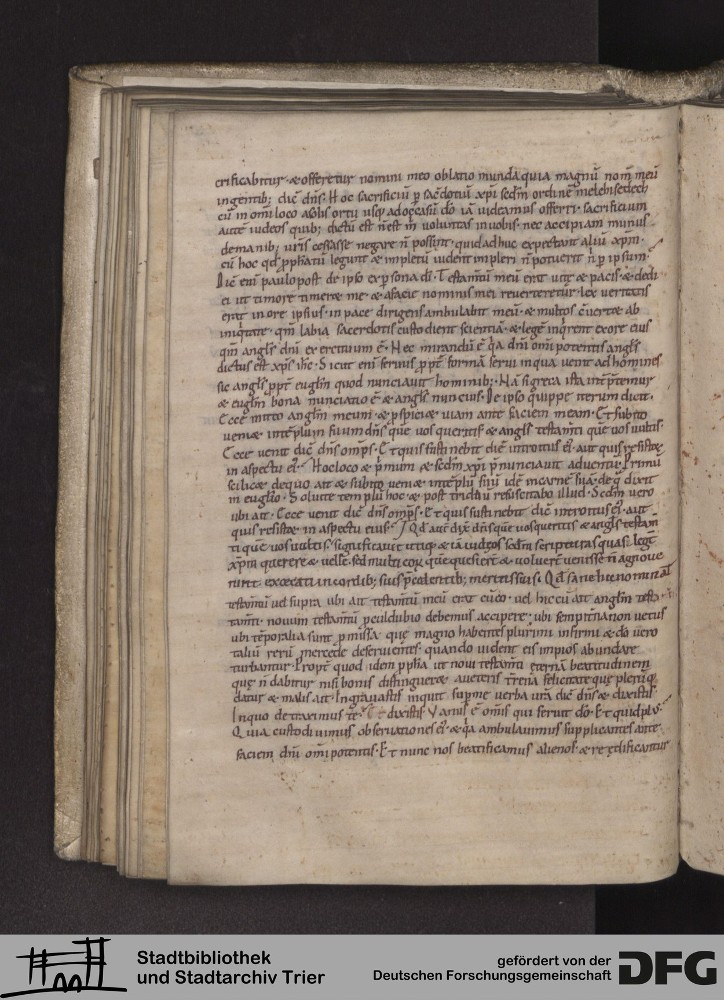 crificabitur ⁊ offeretur nomini meo oblatio munda quia magnū nom̄ meū
in gentib; dic̄ dn̄s. Hoc sacrificiū ꝑ sac̄dotiū xp̄i sc̄dm ordinē melchisedech
cū in om̄i loco a solis ortu usq; ad occasū dō iā uideamus offerri. sacrificium
autē iudeos quib; dictū est n̄ est m̄ uoluntas in uobis. nec accipiam munus
de manib; ur̄is cessasse negare n̄ possint. quid adhuc expectant aliū xp̄m.
cū hoc qd̄ ꝓphatū legunt ⁊ impletū uident impleri n̄ potuerit n̄ ꝑ ipsum.
Dic̄ enī paulo post de ipso ex ꝑsona dī. Testam̄tū meū erat uitę ⁊ pacis. ⁊ dedi
ei ut timore timeret me. ⁊ a facie nominis mei reuerteretur. Lex ueritatis
erat in ore ipsius. in pace dirigens ambulabit mecū. ⁊ multos c̄uertet ab
iniq̇tate. qm̄ labia sacerdotis custodient scientiā. ⁊ legē inq̇rent ex ore eius
qm̄ angl̄s dn̄i exercituum ē. Nec mirandū ē q̇a dn̄i om̄ipotentis angl̄s
dictus est xp̄s ih̄c. Sicut enī seruus ꝓpt̄ formā serui in qua uenit ad homines
sic angl̄s ꝓpt̄ eugl̄m quod nunciauit hominib;. Nā si greca ista int̄ꝑtemur
⁊ eugl̄m bona nunciatio ē ⁊ angl̄s nuncius. De ipso quippe iterum dicit.
Ecce mitto angl̄m meum. ⁊ ꝓspiciet uiam ante faciem meam. Et subito
ueniet in templum suum dn̄s que uos queritis ⁊ angl̄s testam̄ti que uos uultis.
Ecce uenit dic̄ dn̄s om̄ps. Et quis sustinebit diē introitus eī. aut quis resistet
in aspectu eī. Hoc loco ⁊ p̄mum ⁊ sc̄dm xp̄i p̄nunciauit aduentū. Primū
scilicet de quo ait ⁊ subito ueniet in tēplū suū idē in carnē suā. de q̇ dixit
in euglīo. Soluite templū hoc ⁊ post triduū resuscitabo illud. Sc̄dm uero
ubi ait. Ecce uenit dic̄ dn̄s om̄ps. Et quis sustinebit diē introitus eī. aut
quis resistet in aspectu eius. Qd̄ autē dix̄ dn̄s que uos queritis ⁊ angl̄s testam̄
ti que uos uultis. significauit utiq; ⁊ iā iudeos sc̄dm scripturas quas legt̄
xp̄m querere ⁊ uelle. sed multi eoꝝ que quesiert̄ ⁊ uoluert̄ uenisse n̄ agnoue
runt excecati in cordib; suis p̄cedentib; meritis suis. Qd̄ sane hic nominat
testam̄tū uel supra ubi ait testam̄tū meū erat cū eo. uel hic cū ait angl̄m testa
tam̄ti. nouum testam̄tū ꝓculdubio debemus accipere. ubi sempit̄na non uetus
ubi tēporalia sunt ꝓmissa. quę magno habentes plurimi infirmi ⁊ dō uero
taliū rerū mercede deseruientes. quando uident eis impios abundare
turbantur. Propt̄ quod idem ꝓpha ut noui testam̄ti eternā beatitudinem
quę n̄ dabitur nisi bonis distingueret a ueteris t̄rena felicitate quę plerūq;
datur ⁊ malis ait. Ingrauastis inquit sup me uerba ur̄a dic̄ dn̄s ⁊ dixistis
In quo detraximus te. Et dixistis Vanus ē om̄is qui seruit dō. Et quid plus
Quia custodiuimus obseruationes eī. ⁊ q̇a ambulauimus supplicantes ante
faciem dn̄i om̄ipotentis. Et nunc nos beatificamus alienos. ⁊ reędificantur
Stadtbibliothek
und Stadtarchiv Trier
gefördert von der
Deutschen Forschungsgemeinschaft
DFG